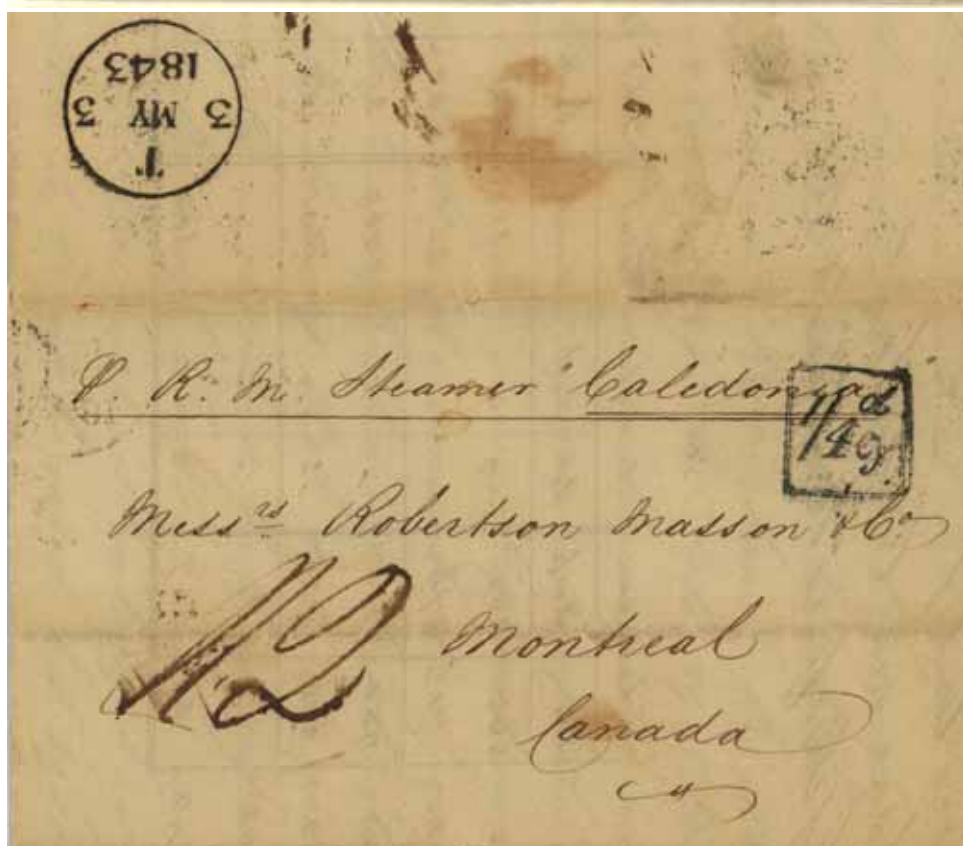 T
3 MY 3
1843
P. R. M. Steamer "Caledonia"
1/4d
Messrs Robertson Masson & Co.
1/2
Montreal
Canada